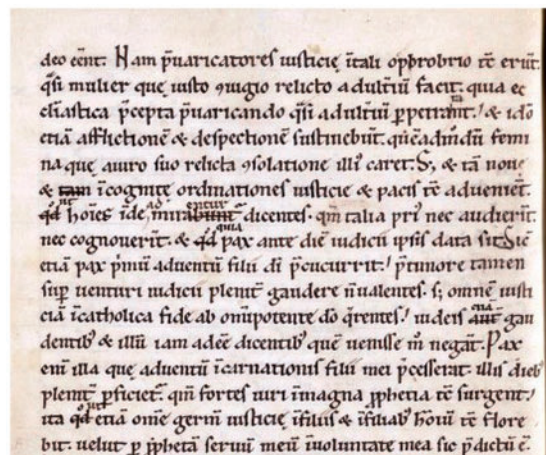 deo eēnt. Nam p̄uaricatores iusticię ītali opp̄robrio tc̄ erūt.
q̄si mulier que iusto ꝯiugio relicto adultiū facit. quia ec
cłiastica p̄cepta p̄uaricando q̄si adultiū ꝑpetrant. & idō
etiā afflictionē & despectionē sustinebūt. quēadmdū femi
na que auiro suo relicta ꝯsolatione illi' caret. S; & tā noue
& tam īcognite ordinationes iusticie & pacis tc̄ aduenięt.
qd ut hoīes īde admirabunt entur dicentes. qm̄ talia pri' nec audierīt.
nec cognouerīt. & qd quia pax ante diē iudicii ipsis data sit. Sic
etiā pax p̄mū aduentū filii dī p̄cucurrit. p̄ timore tamen
suꝑ uenturi iudicii pleniť gaudere ñ ualentes. s; omnē iusti
ciā ī catholica fide ab omīpotente dō q̄rentes. iudeis aut quia gau
dentib; & illū iam adeē dicentib; quē uenisse m̄ negāt. Pax
enī illa que aduentū īcarnationis filii mei p̄cesserat. illis dieb;
pleniť ꝑficieť. qm̄ fortes uiri ī magna ꝓphetia tc̄ surgent.
ita qd ut etiā omē germ̄ iusticie ī filiis & ī filiab; hoīū tc̄ flore
bit. uelut ꝑ ꝓphetā seruū meū ī uoluntate mea sic p̄dictū ē.